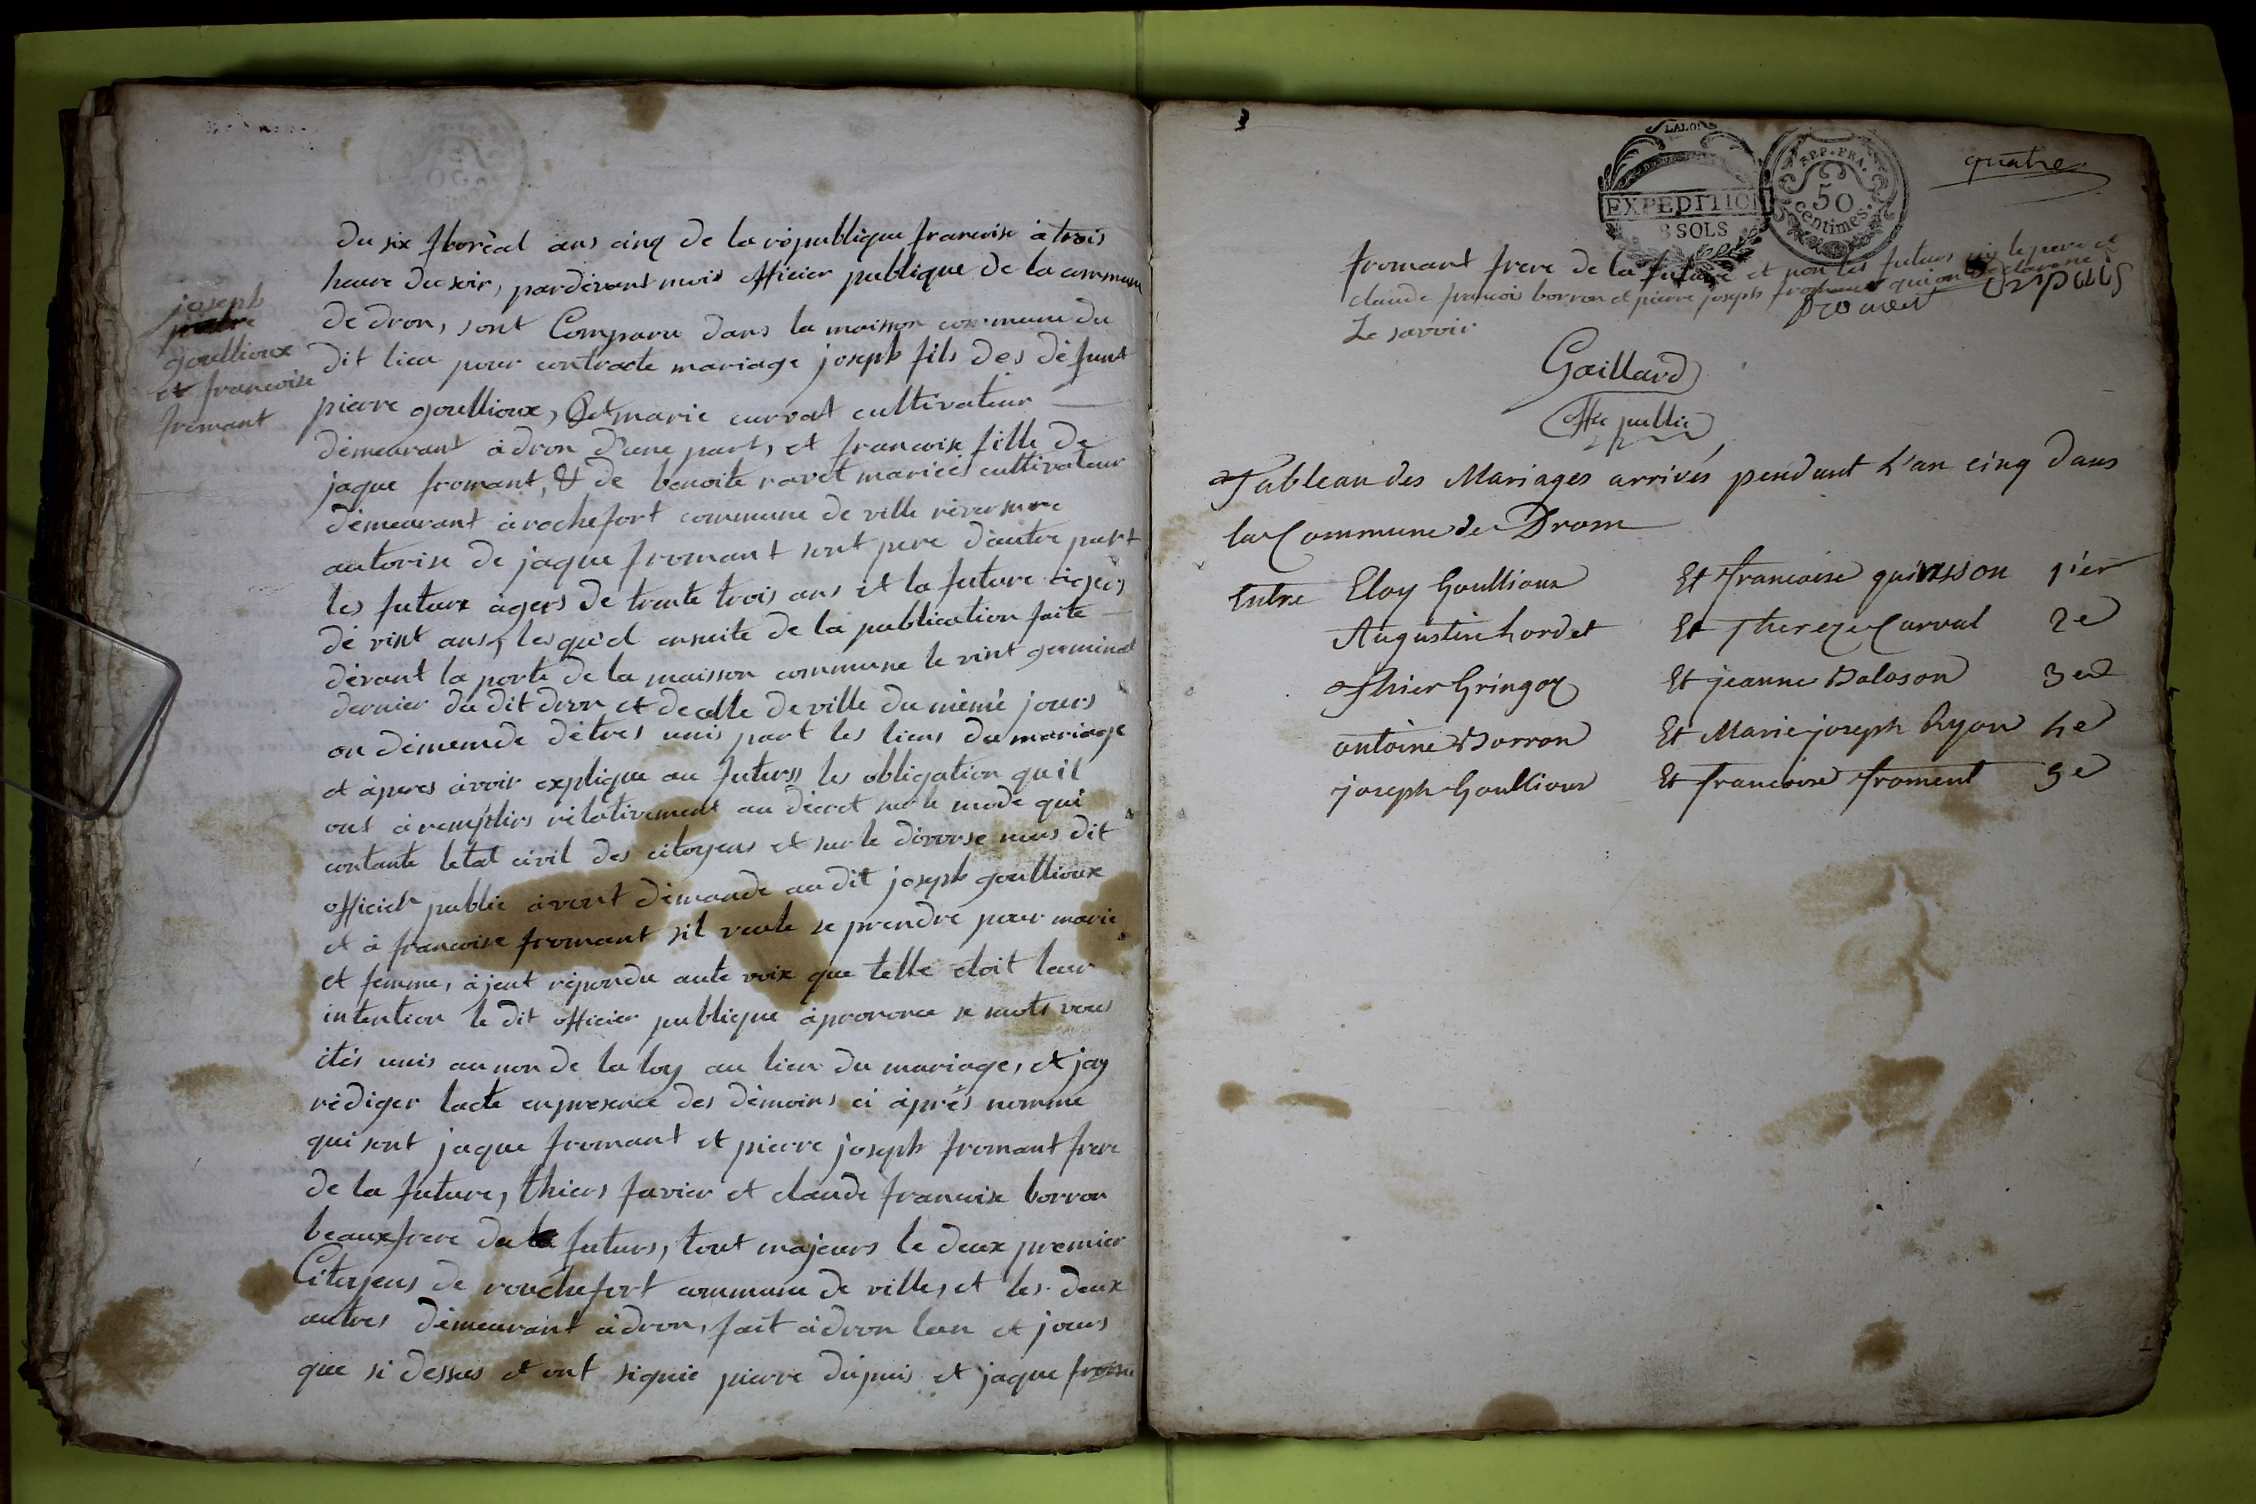 du six floréal ans cinq de la république francoise à trois
heure du soir, pardévant mois officier publique de la commune
de dron, sont Comparu dans la maison commune du
dit lieu pour contracte mariage joseph fils des défunt
pierre goullioux, & et marie curvat cultivateur
démeurant à dron d'une part, et francoise fille de
jaque fromant, & de benoite ravet mariéé cultivateur
démeurant à rochefort commune de ville réversure
autorise de jaque fromant sont pere d'autre part
les future àgers de trante trois ans et la future àgers
dé vint ans, les qu'el ensuite de la publication faite
dévant la porte de la maisson commune le vint germinal
dernier du dit dron et de celle de ville du mémé jours
on démemde dètres unis part les liens du mariage
et àpres àvoir explique au futurs les obligation qu'il
ont à remplirs rélativement au décret sur le mode qui
contante letat civil des citoyens et sur le divorse nous dit
officier public àvont démande au dit joseph goullioux
et à francoise fromant sil veule se prendre pour marie
et femme, àjent répondu aute voix que telle étoit leur
intention le dit officier publique àprononce se mots vous
étés unis au non de la loy au lien du mariage, et jay
rédiger lacte en presence des démoins ci àprés nomme
qui sont jaque fromant et pierre joseph fromant frere
de la future, thiers favier et claude francoise borron
beaux frere du futurs, tout majeurs le deux premier
Citoyens de rouchefort commune de villes et les deux
autres démeurant à dron, fait à dron lan et jours
que si dessus et ont signié pierre dupuis et jaque
joseph
goullioux
et francoise
fromant
quatre
LALOI
EXPEDITION
8 SOLS
REP. FRA.
50
centimes.
fromant frere de la future et non les futurs le pere et
claude francois borron et pierre joseph fromant qui on déclarane
Le savoir
Gaillard
offi public
Tableau des Mariages arrivés pendant L'an cinq dans
la Commune de Drom
Entre Eloy Goullioux Et francoise quinsson 1ier
Augustin hordet Et Thereze Curval 2e
Thier Gringoy Et jeanne Baloson 3e
antoine Borron Et Marie joseph Ryon 4e
joseph Goullioux Et francoise froment 5e